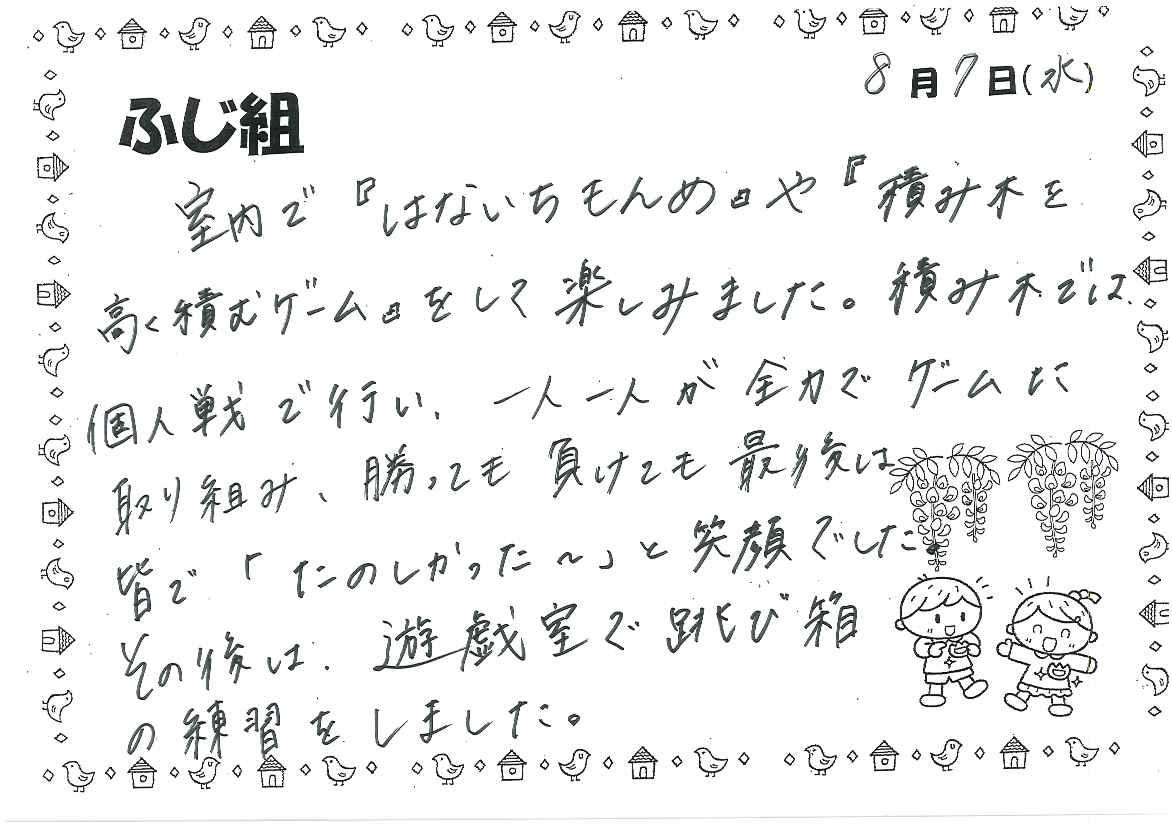 8月7日(水)
ふじ組
室内で『はないちもんめ』や『積み木を
高く積むゲーム』をして楽しみました。積み木では、
個人戦で行い、一人一人が全力でゲームに
取り組み、勝っても負けても最後は
皆で「たのしかった～」と笑顔でした。
その後は、遊戯室で跳び箱
の練習をしました。